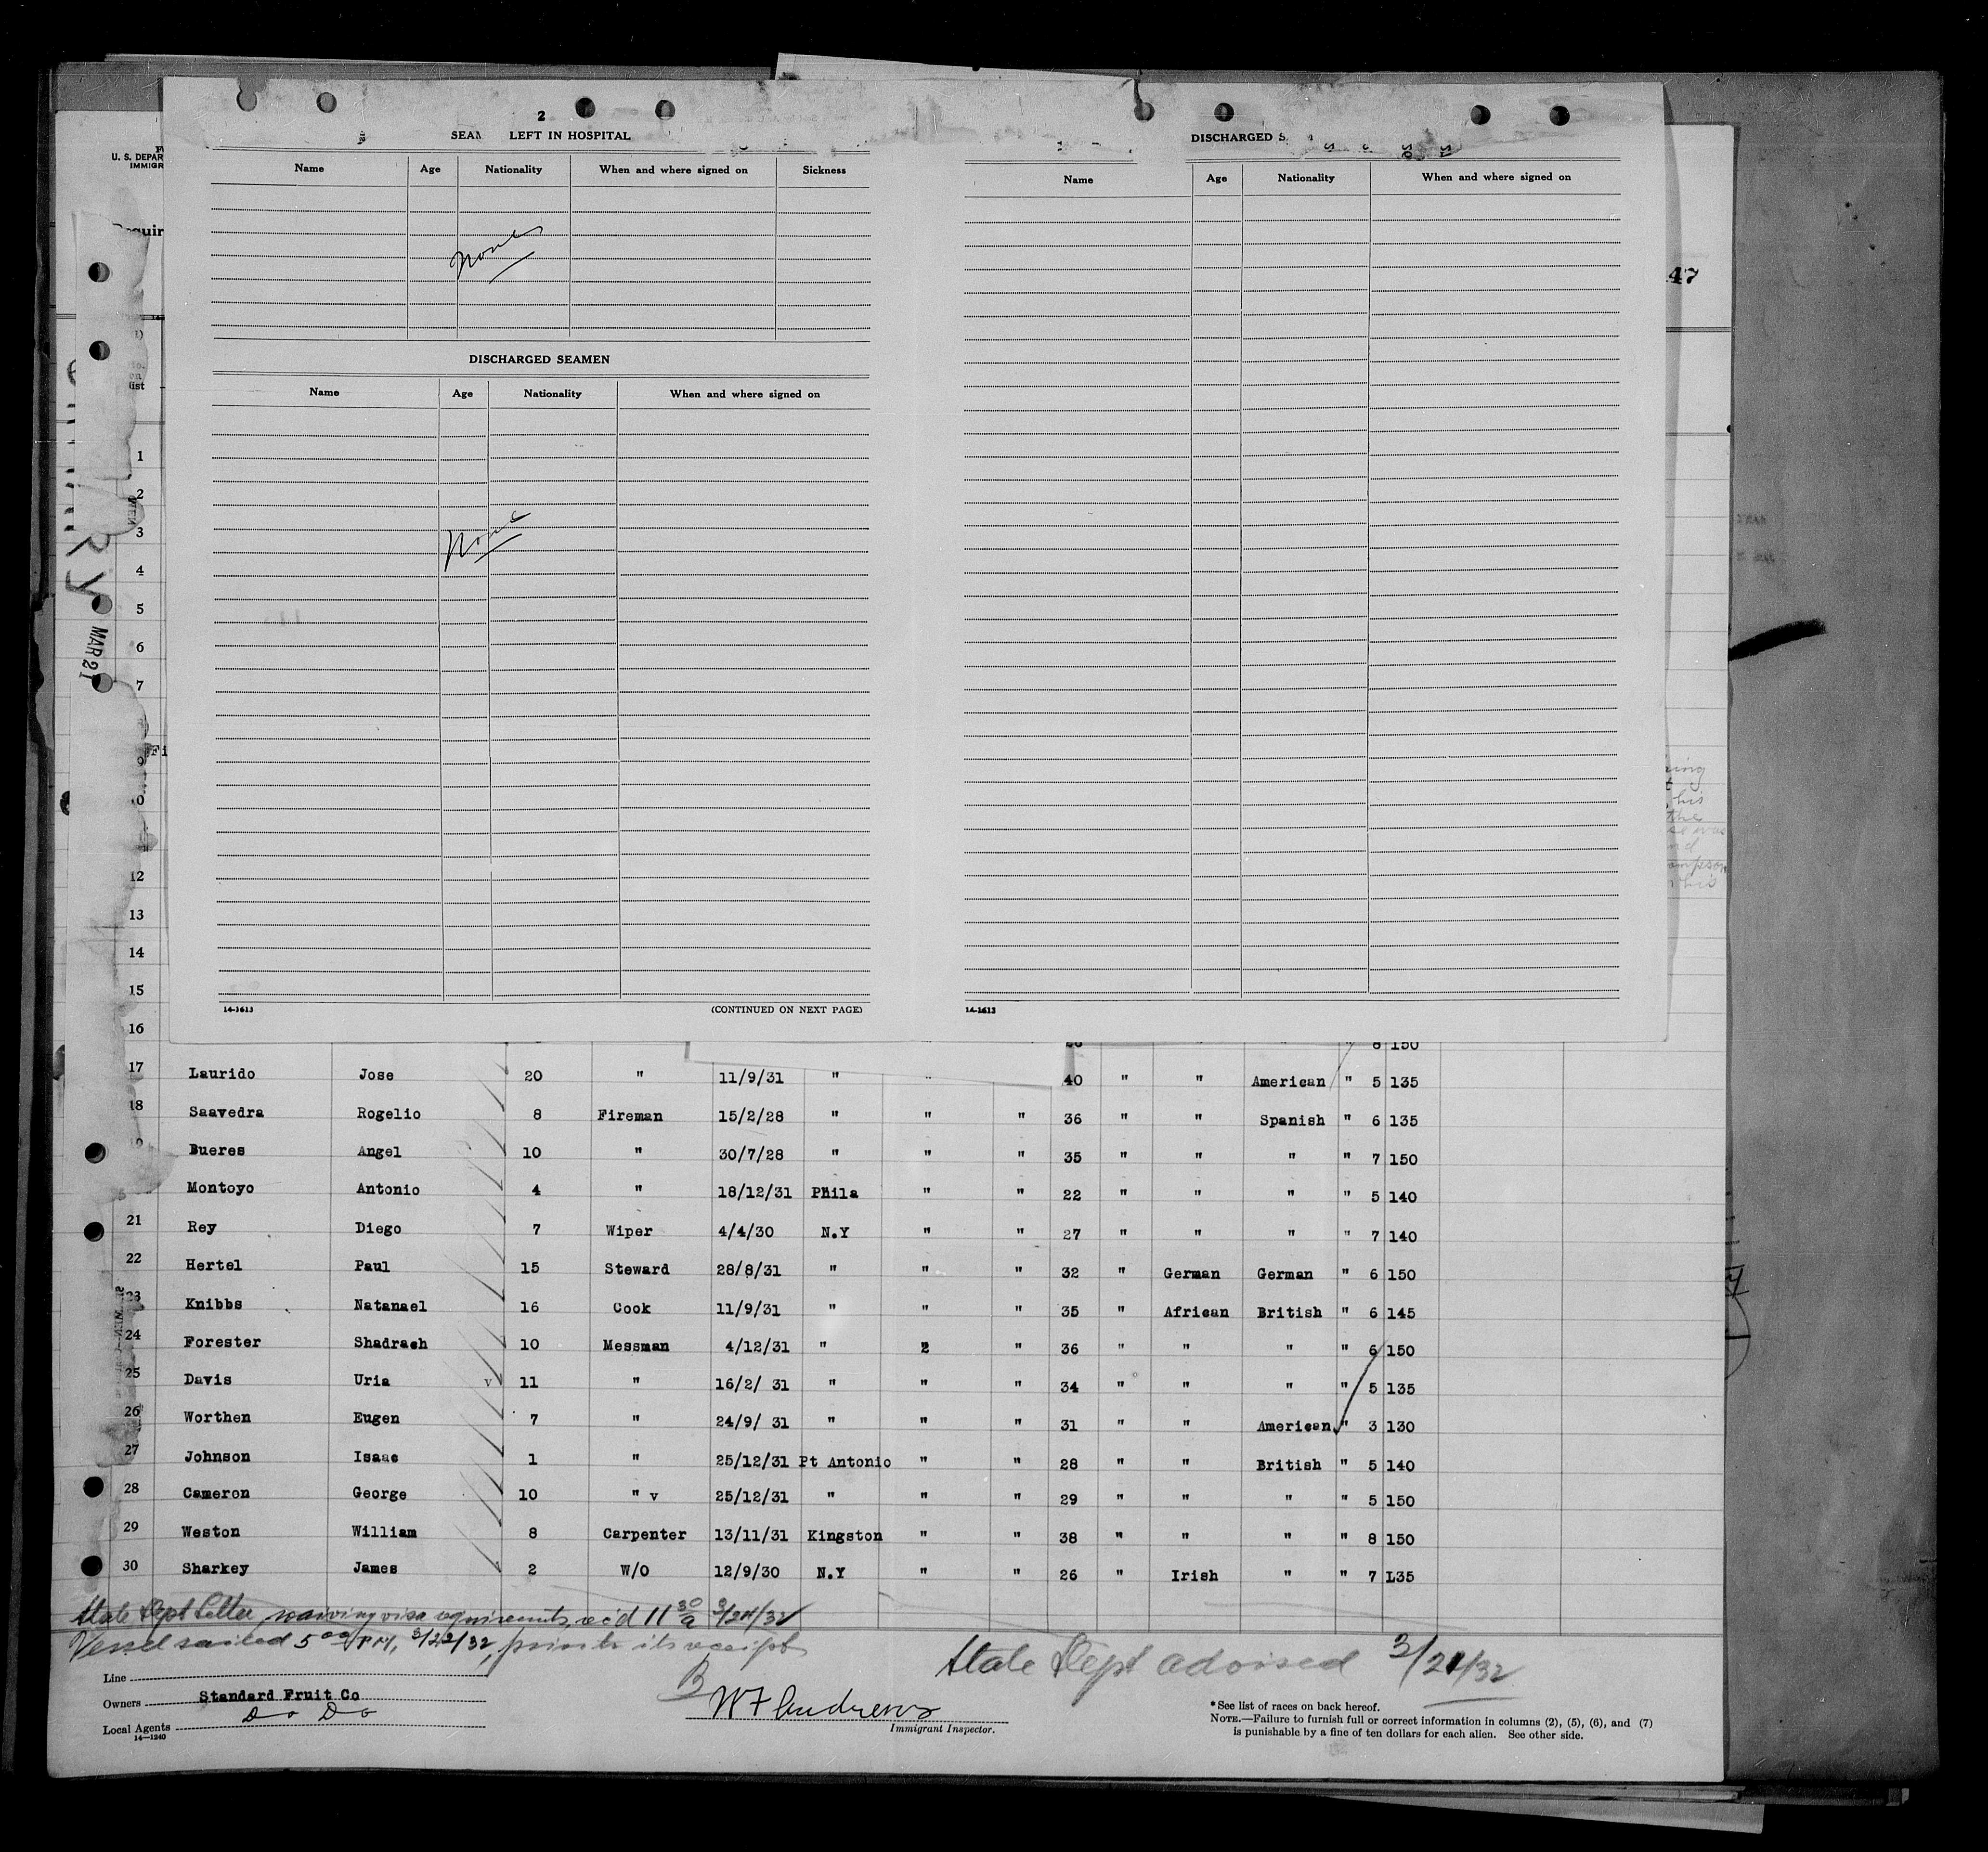 2
SEAM LEFT IN HOSPITAL
Name Age Nationality When and where signed on Sickness
None
DISCHARGED SEAMEN
Name Age Nationality When and where signed on
None
14-1613 (CONTINUED ON NEXT PAGE)
DISCHARGED S
Name Age Nationality When and where signed on
14-1613
U. S. DEPAR
IMMIGR
47
list
MAR 21
1
2
3
4
5
6
7
9
12
13
14
15
16
8 150
17 Laurido Jose 20 " 11/9/31 " " 40 " " American " 5 135
18 Saavedra Rogelio 8 Fireman 15/2/28 " " " 36 " " Spanish " 6 135
Bueres Angel 10 " 30/7/28 " " " 35 " " " " 7 150
Montoyo Antonio 4 " 18/12/31 Phila " " 22 " " " " 5 140
21 Rey Diego 7 Wiper 4/4/30 N.Y " " 27 " " " " 7 140
22 Hertel Paul 15 Steward 28/8/31 " " " 32 " German German " 6 150
23 Knibbs Natanael 16 Cook 11/9/31 " " " 35 " African British " 6 145
24 Forester Shadrach 10 Messman 4/12/31 " " " 36 " " " " 6 150
25 Davis Uria v 11 " 16/2/ 31 " " " 34 " " " " 5 135
26 Worthen Eugen 7 " 24/9/ 31 " " " 31 " " American " 3 130
27 Johnson Isaac 1 " 25/12/31 Pt Antonio " " 28 " " British " 5 140
28 Cameron George 10 " v 25/12/31 " " " 29 " " " " 5 150
29 Weston William 8 Carpenter 13/11/31 Kingston " " 38 " " " " 8 150
30 Sharkey James 2 W/O 12/9/30 N.Y " " 26 " Irish " " 7 135
State Dept Letter waiving visa requirements, rec'd 11 30 a 3/24/32
Vessel sailed 5 00 PM, 3/22/32, prior to its receipt
State Dept advised 3/21/32
Line
Owners Standard Fruit Co
Local Agents Do Do
14—1240
W F Andrews
Immigrant Inspector.
*See list of races on back hereof.
NOTE.—Failure to furnish full or correct information in columns (2), (5), (6), and (7)
is punishable by a fine of ten dollars for each alien. See other side.